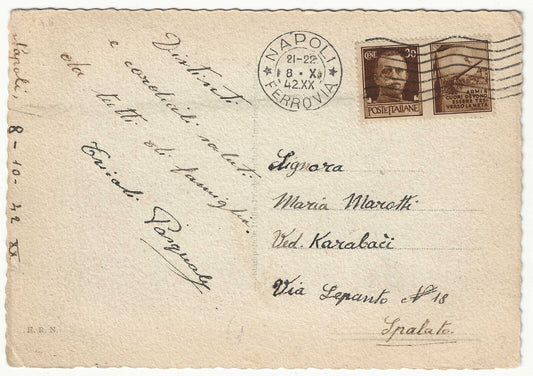 Napoli 8-10-42 XX
Distinti
e cordiali saluti
da tutti di famiglia.
Pasquale
NAPOLI
21-22
8 · X
42.XX
FERROVIA
CENT 30
POSTE ITALIANE
ARMI E
CUORI DEVONO
ESSERE TESI
VERSO LA META
Signora
Maria Marotti
Ved. Karabaći
Via Lepanto N 18
Spalato.
E. R. N.